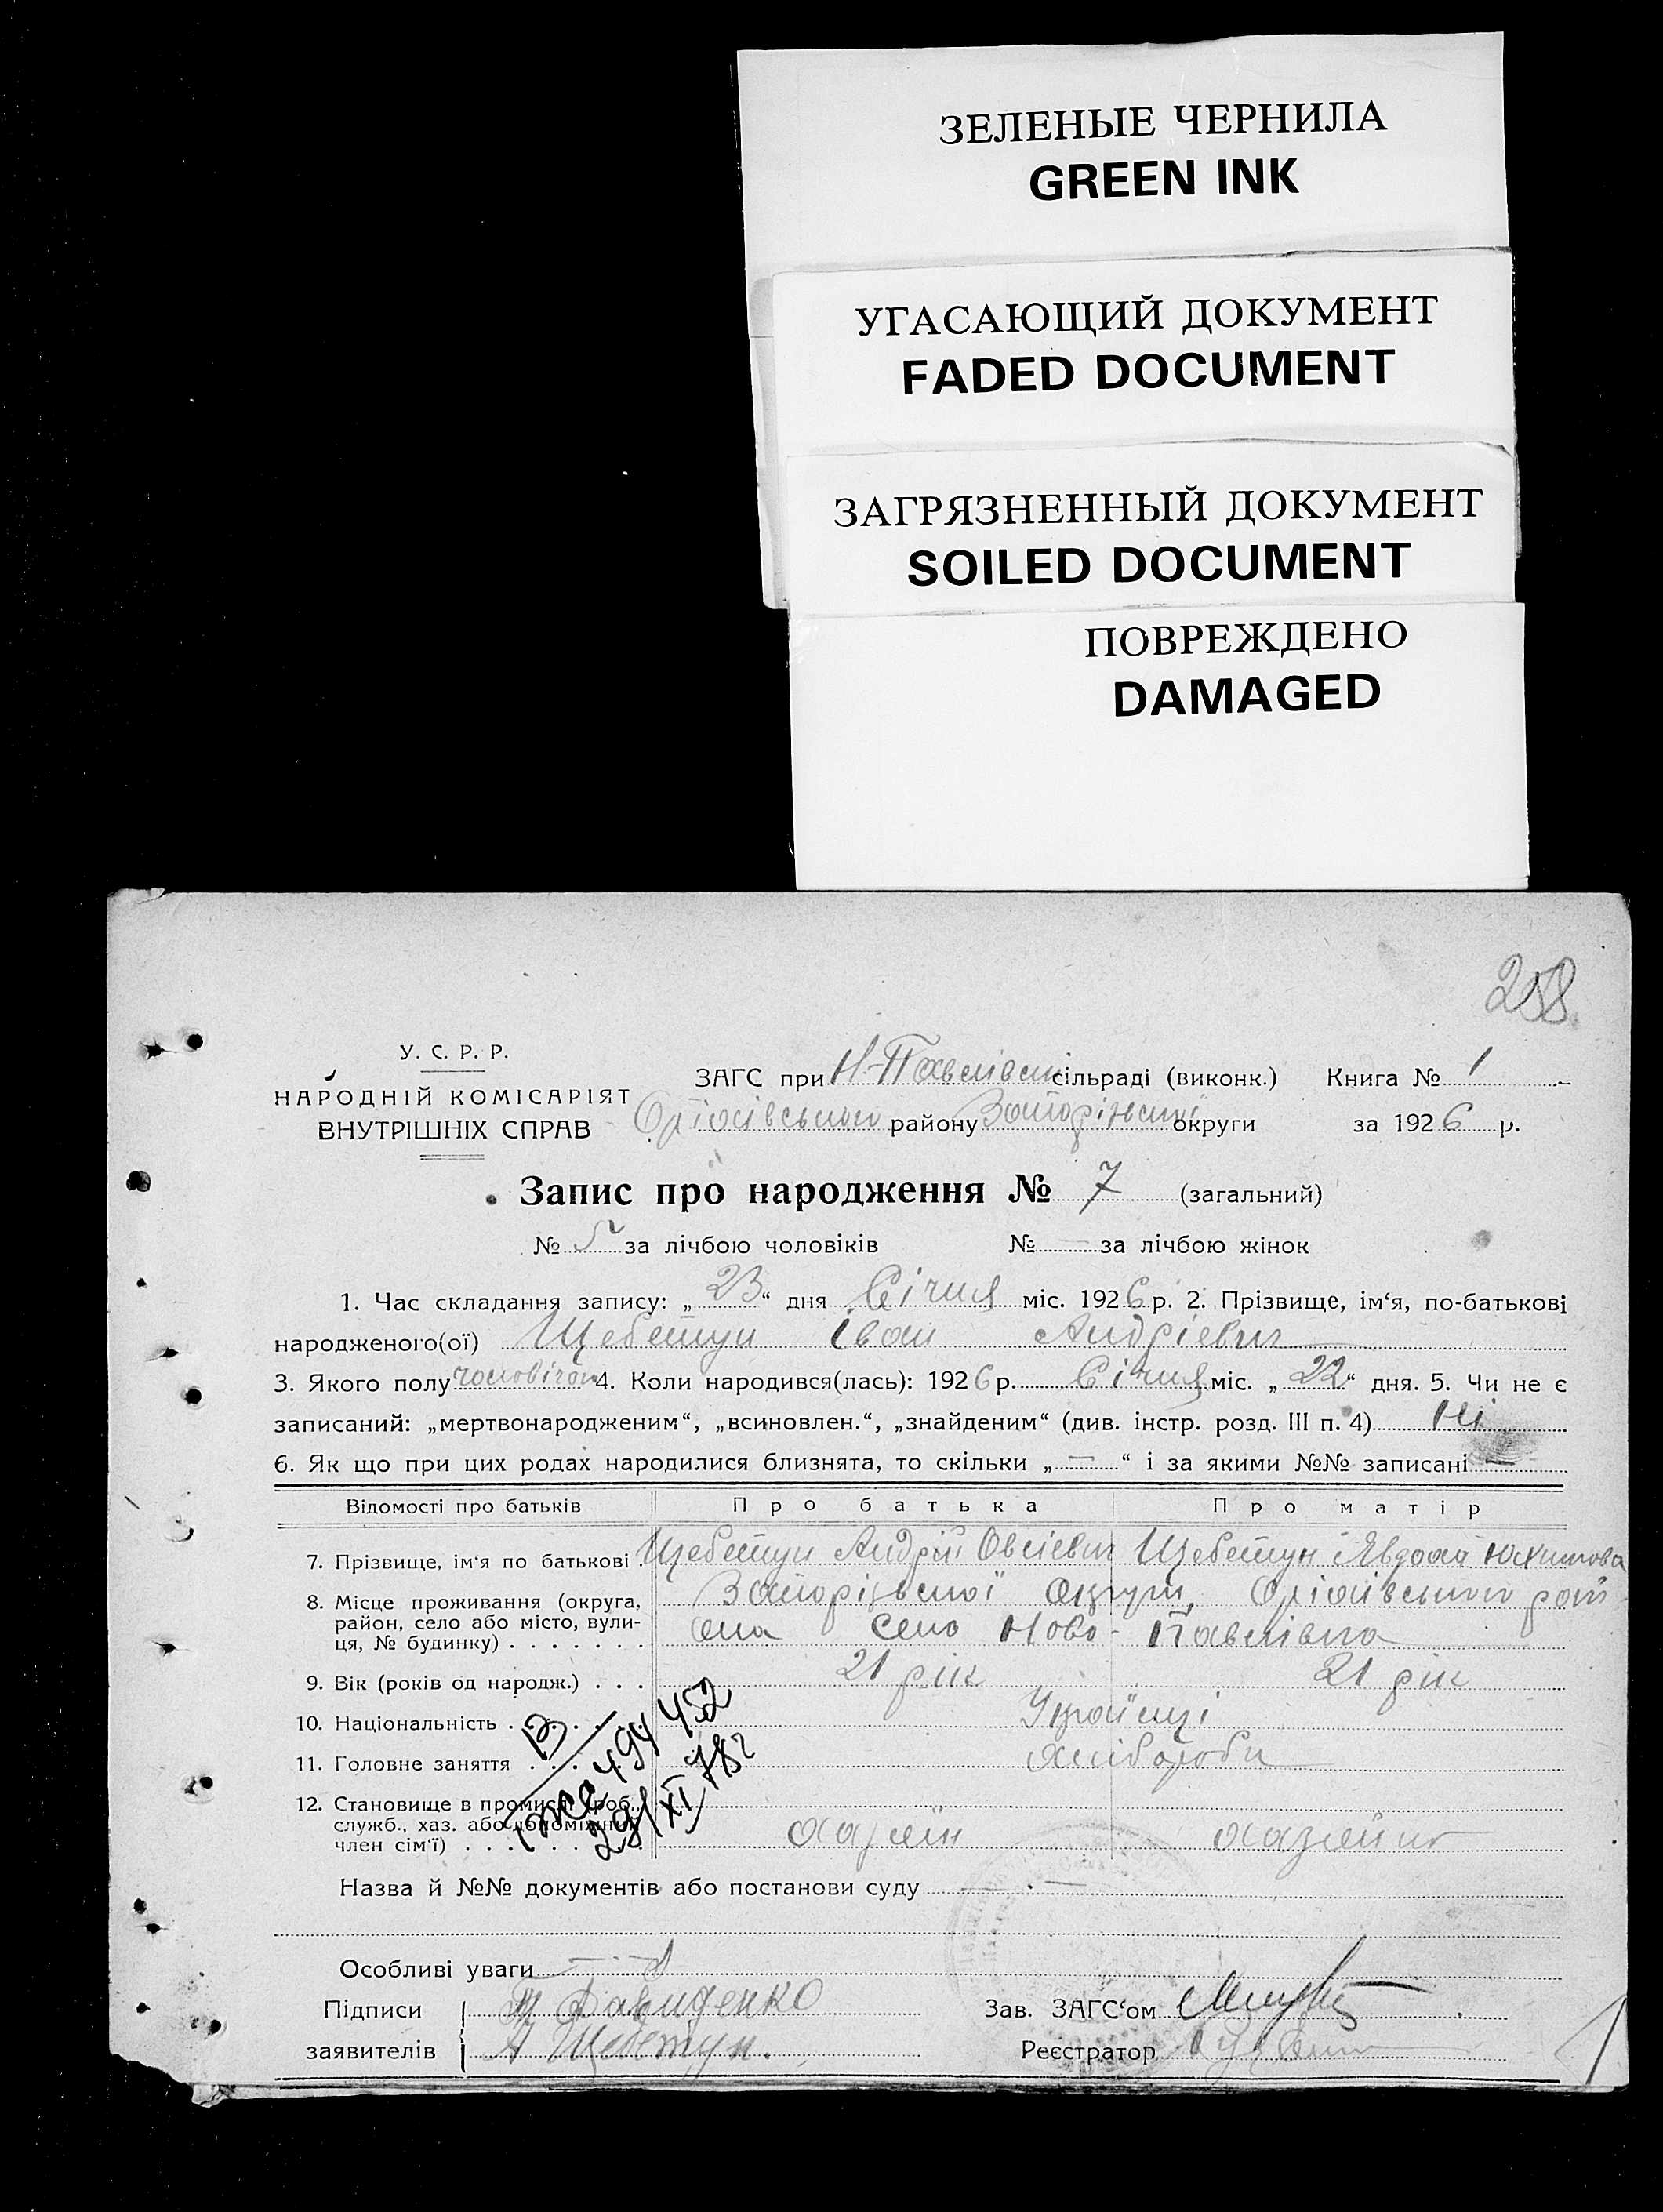 ЗЕЛЕНЫЕ ЧЕРНИЛА
GREEN INK
УГАСАЮЩИЙ ДОКУМЕНТ
FADED DOCUMENT
ЗАГРЯЗНЕННЫЙ ДОКУМЕНТ
SOILED DOCUMENT
ПОВРЕЖДЕНО
DAMAGED
258
У. С. Р. Р.
НАРОДНІЙ КОМІСАРІЯТ
ВНУТРІШНІХ СПРАВ
ЗАГС при Н-Павлівськ сільраді (виконк.) Книга № 1
Оріхівського району Запоріжської округи за 1926 р.
Запис про народження № 7 (загальний)
№ 5 за лічбою чоловіків № — за лічбою жінок
1. Час складання запису: „23“ дня Січня міс. 1926 р. 2. Прізвище, ім‘я, по-батькові
народженого(ої) Щебетун Іван Андрієвич
3. Якого полу чоловічого 4. Коли народився(лась): 1926 р. Січня міс. „22“ дня. 5. Чи не є
записаний: „мертвонародженим“, „всиновлен.“, „знайденим“ (див. інстр. розд. III п. 4) Ні
6. Як що при цих родах народилися близнята, то скільки „—“ і за якими №№ записані —
Відомості про батьків Про батька Про матір
7. Прізвище, ім‘я по батькові Щебетун Андрій Овсієвич Щебетун Явдоха
8. Місце проживання (округа, район, село або місто, вулиця, № будинку) Запоріжської округи, Оріхівського рай
она село Ново-Павлівка
9. Вік (років од народж.) 21 рік 21 рік
10. Національність Українці
11. Головне заняття хлібороби
12. Становище в промислі (роб., служб., хаз. або допоміжний член сім‘ї) хазяїн хазяйка
494452
29/XI 78г
Назва й №№ документів або постанови суду —
Особливі уваги —
Підписи заявителів
П Давиденко
А Щебетун.
Зав. ЗАГС‘ом
Реєстратор